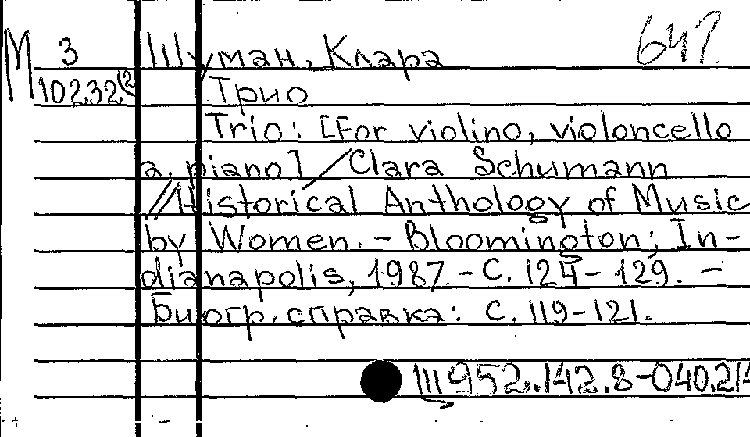 М 3 Шуман, Клара 647
10232(2 Трио
Trio: [For violino, violoncello
a. piano] / Clara Schumann
// Historical Anthology of Music
by Women. - Bloomington; In-
dianapolis, 1987 - С. 124 - 129. -
Биогр. справка: С. 119-121.
Ш952.142.8-040.2